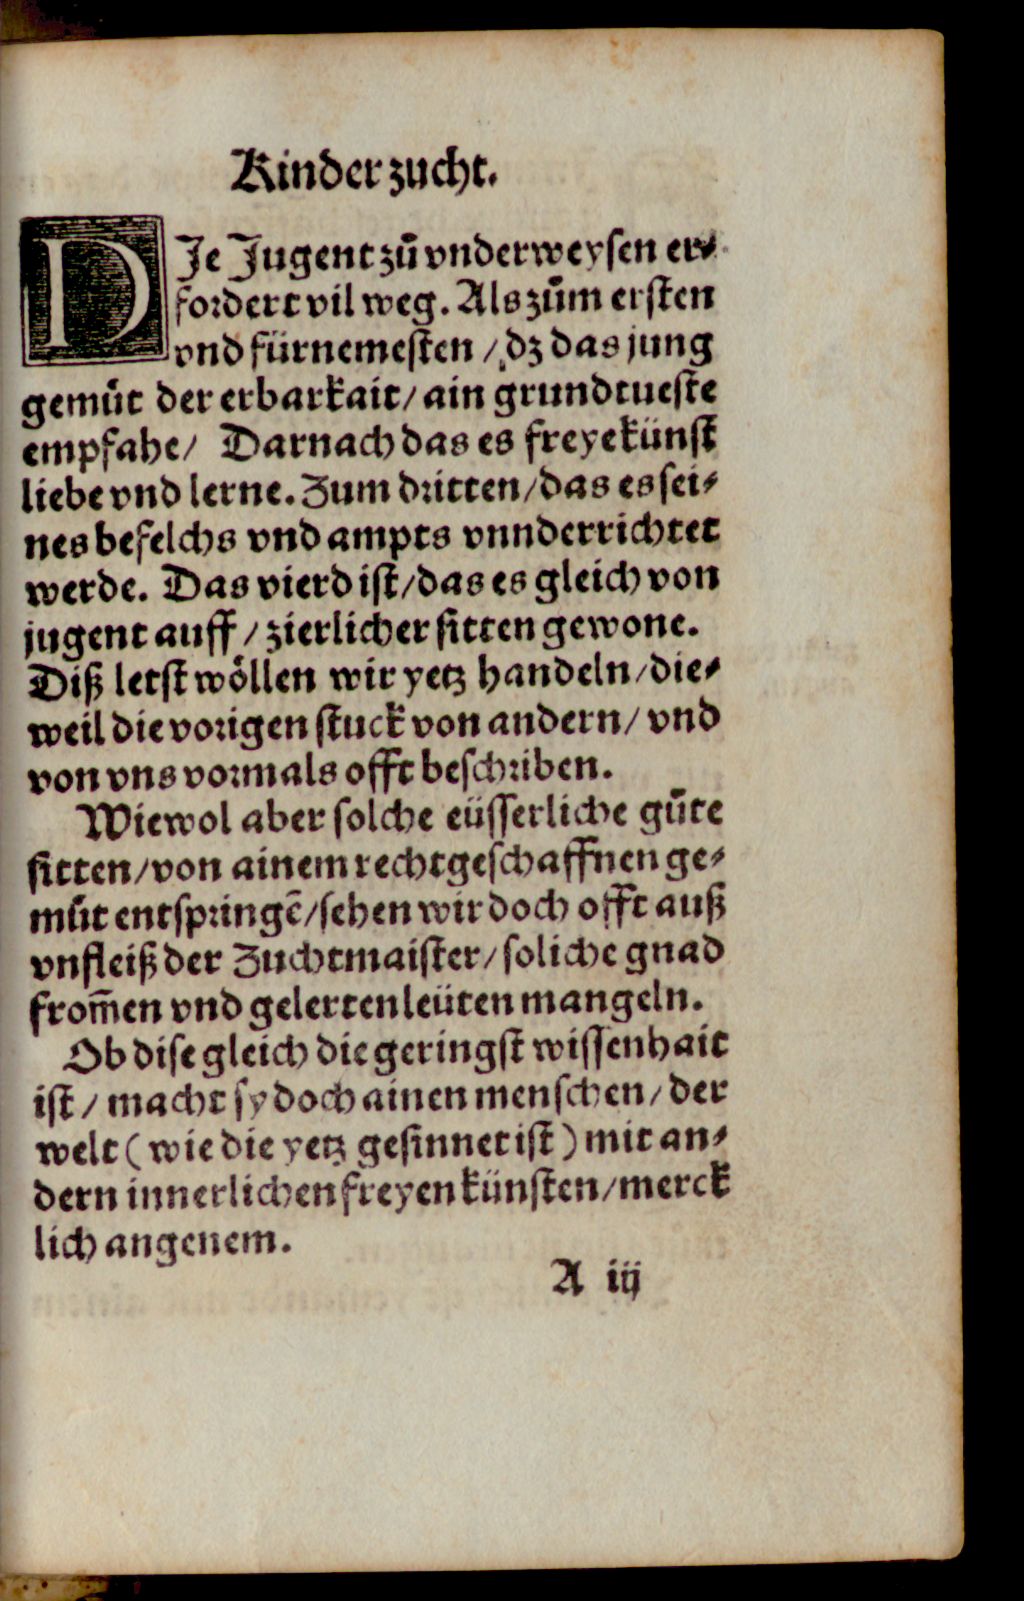 Kinder zucht.
DJe Jugent zů vnderweysen er⸗
fordert vil weg. Als zům ersten
vnd fürnemesten / dz das jung
gemůt der erbarkait / ain grundtueste
empfahe / Darnach das es freye künst
liebe vnd lerne. Zum dritten / das es sei⸗
nes befelchs vnd ampts vnnderrichtet
werde. Das vierd ist / das es gleich von
jugent auff / zierlicher sitten gewone.
Diß letst wöllen wir yetz handeln / die⸗
weil die vorigen stuck von andern / vnd
von vns vormals offt beschriben.
Wiewol aber solche eüsserliche gůte
sitten / von ainem rechtgeschaffnen ge⸗
můt entspringē / sehen wir doch offt auß
vnfleiß der Zuchtmaister / soliche gnad
from̄en vnd gelerten leüten mangeln.
Ob dise gleich die geringst wissenhait
ist / macht sy doch ainen menschen / der
welt ( wie die yetz gesinnet ist ) mit an⸗
dern innerlichen freyen künsten / merck
lich angenem.
A iij